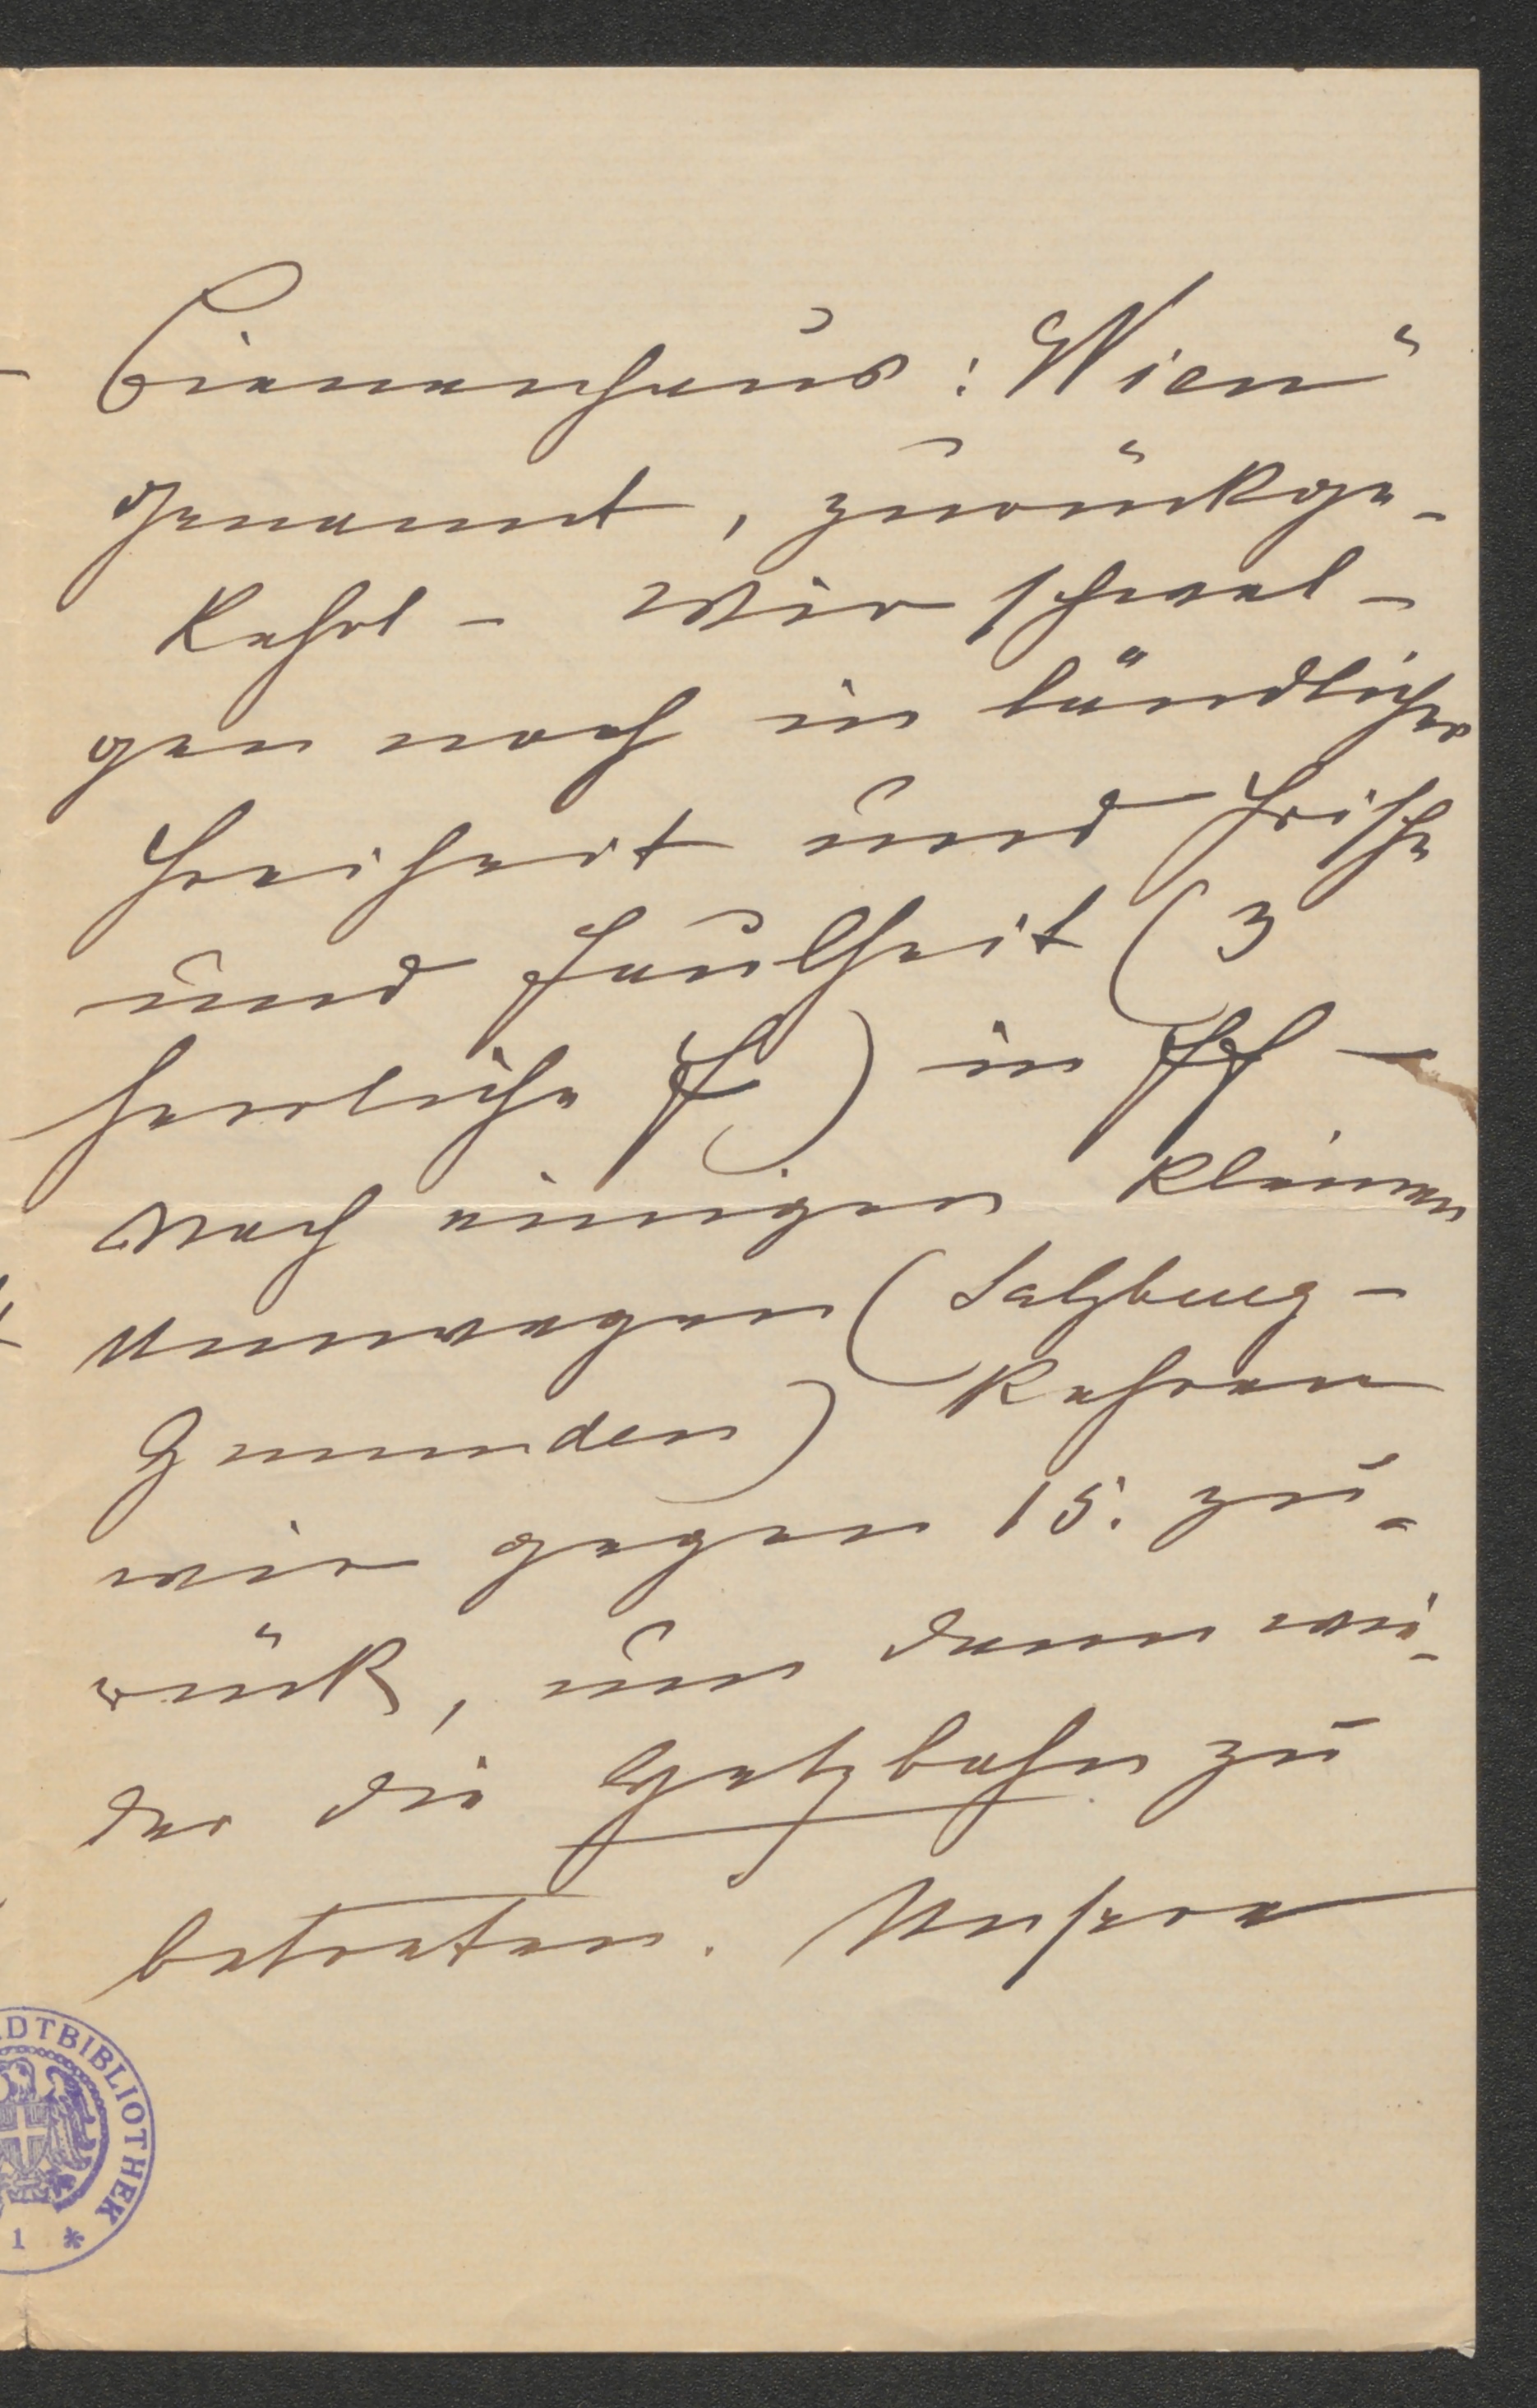 Bienenhaus: Wien"
genannt, zurückge-
kehrt – wir schwel-
gen noch in ländlicher
Freiheit und Frische
und Faulheit (3
herrliche F) in ff –
Nach einigen kleinen
Umwegen (Salzburg –
Gmunden) kehren
wir gegen 15. zu-
rück, um dann wie-
der die Hetzbahn zu
betreten. Unsere
ADTBIBLIOTHEK
1 *